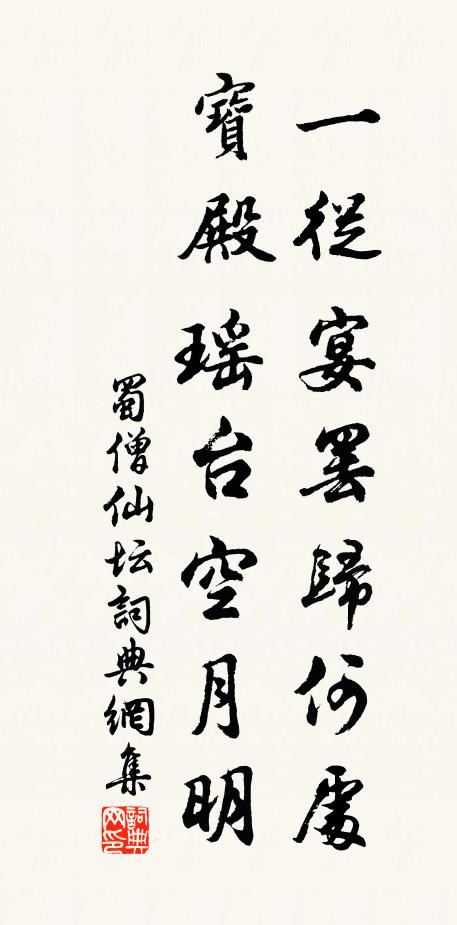 一從宴罷歸何處
寶殿瑤台空月明
蜀僧仙坛詞典網集
詞典网印